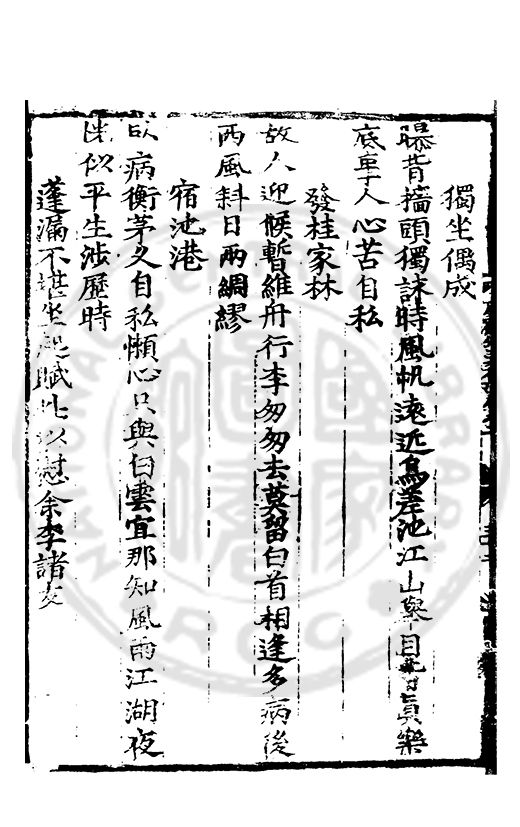 獨坐偶成
曝背牆頭獨詠時風帆遠近鳥差池江山舉目皆真樂
底事人心苦自私
發桂家林
故人迎候暫維舟行李匆匆去莫留白首相逢多病後
西風斜日兩綢繆
宿池港
臥病衡茅久自私懶心只與白雲宜那知風雨江湖夜
似平生涉歷時
蓬漏不堪坐起賦此以慰余李諸友